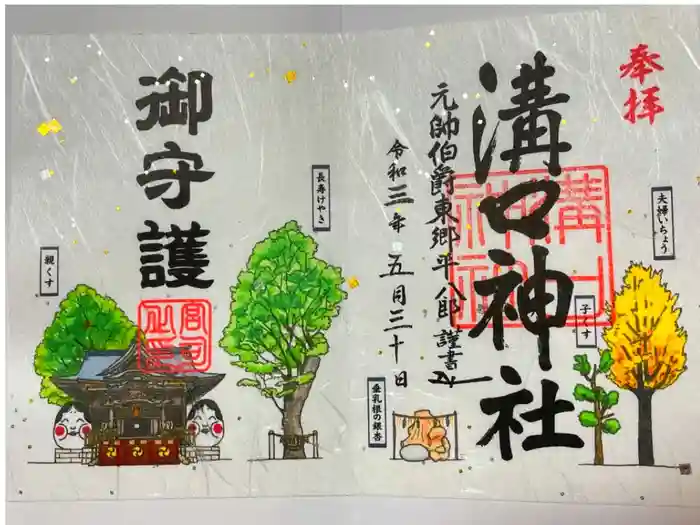 奉拝
溝口神社
元帥伯爵東郷平八郎 謹書
令和三年五月三十日
夫婦いちょう
子くす
垂乳根の銀杏
長寿けやき
御守護
親くす